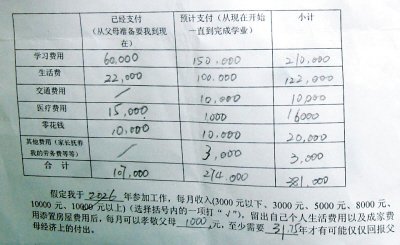 已经支付 预计支付（从现在开始 小计
（从父母准备要我到现 一直到完成学业）
在）
学习费用 60,000 150,000 210,000
生活费 22,000 100,000 122,000
交通费用 / 10,000 10,000
医疗费用 15,000 1000 16000
零花钱 10,000 10,000 20,000
其他费用（家长抚养 / 3,000 3,000
我的劳务费等等）
合 计 107,000 274,000 381,000
假定我于 2026 年参加工作，每月收入(3000 元以下、3000 元、5000 元、8000 元、
10000 元、10000 元以上)（选择括号内的一项打“√”），留出自己个人生活费用以及成家费
用添置房屋费用后，每月可以孝敬父母 1000 元，至少需要 31.75 年才有可能仅仅回报父
母经济上的付出。